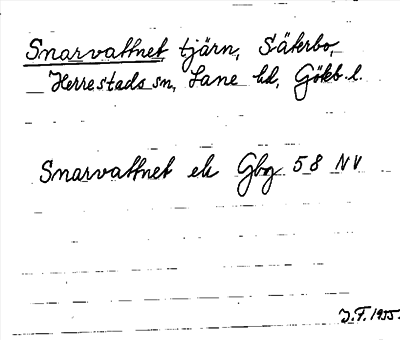 Snarvattnet tjärn, Säkerbo,
Herrestads sn, Lane hd, Gökb. l.
Snarvattnet ek Gbg 58 NV
J.F. 1955.